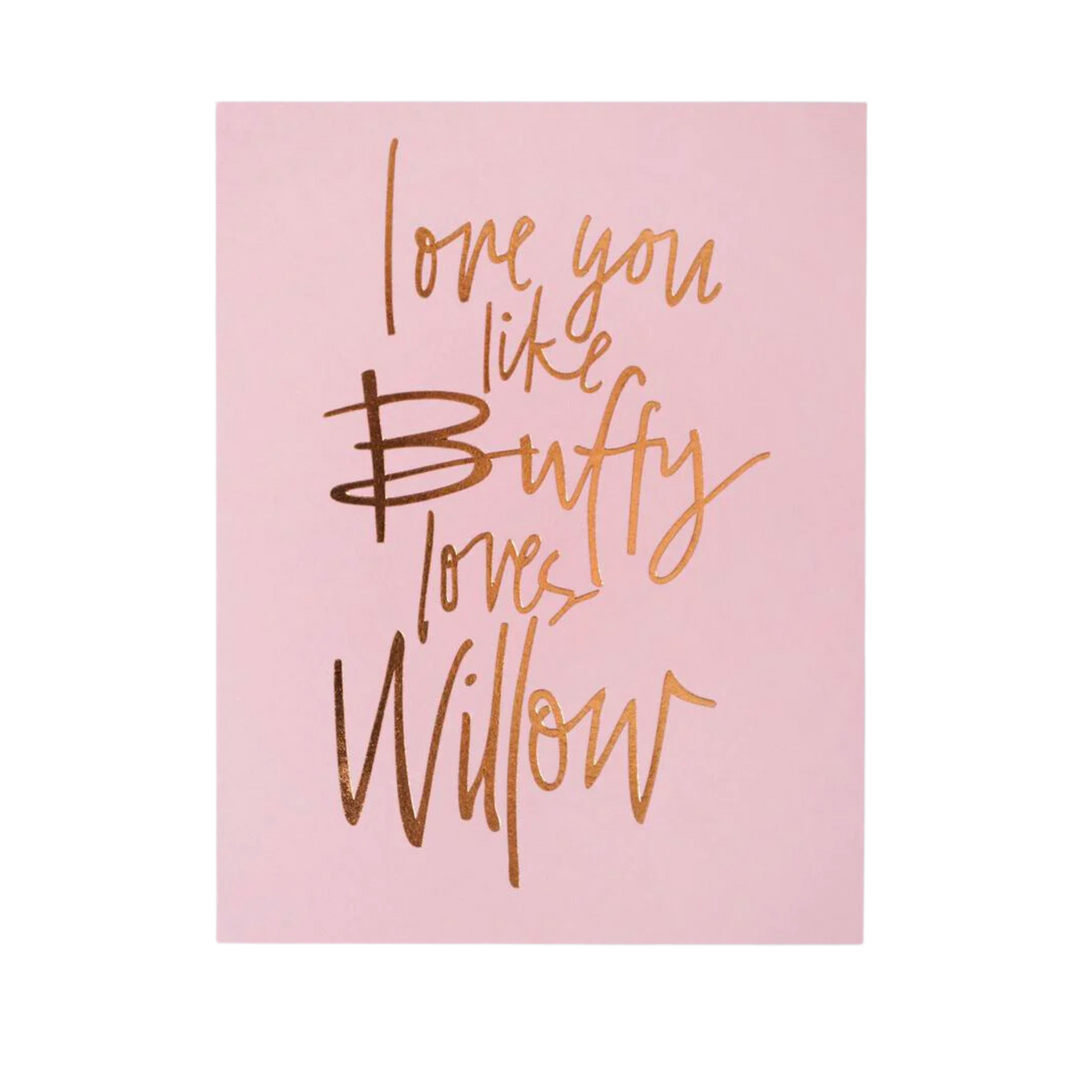 love you
like
Buffy
loves
Willow